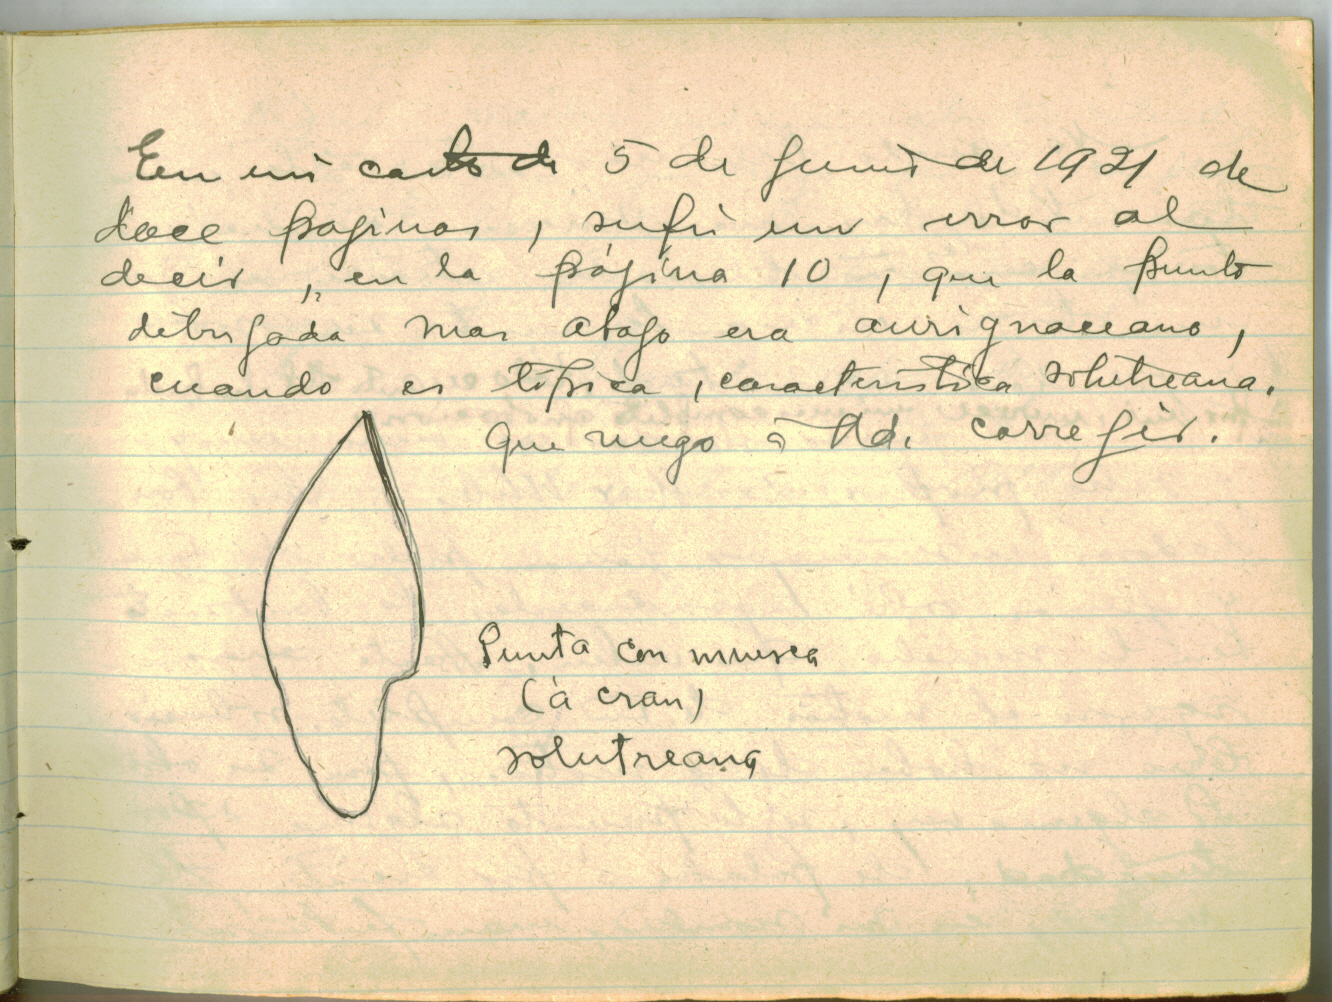 En mi carta de 5 de Junio de 1921 de
doce paginas, sufri un error al
decir, en la página 10, que la punta
dibujada mas abajo era aurignaceano,
cuando es típica, característica solutreana.
que ruego a Vd. corregir.
Punta con muesca
(à cran)
solutreana